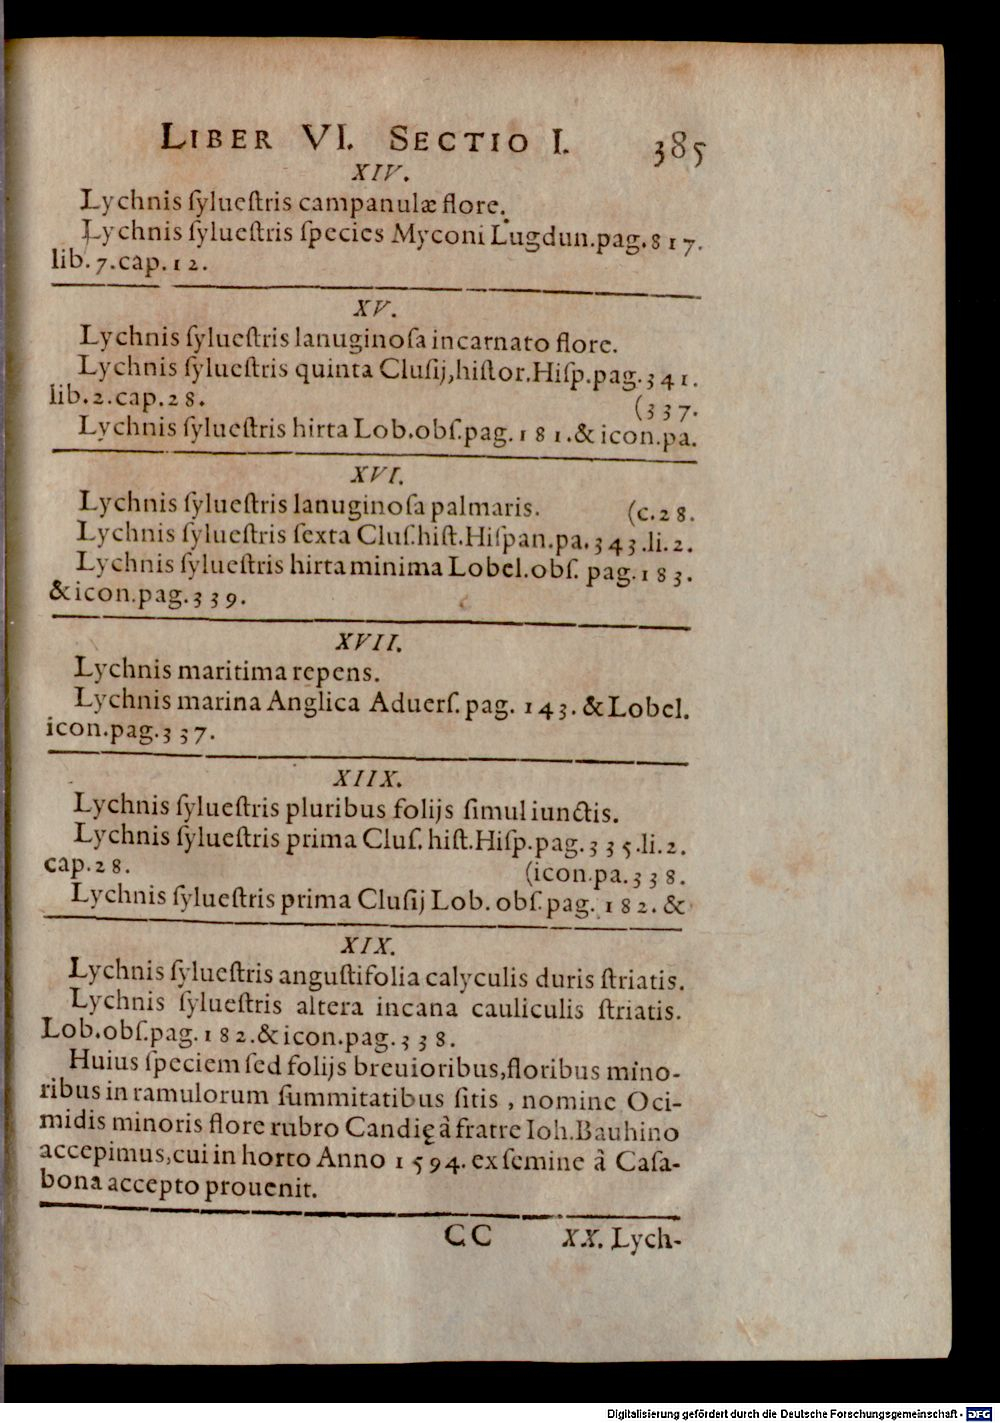 LIBER VI. SECTIO I. 385
XIV.
Lychnis ſylueſtris campanulæ flore.
Lychnis ſylueſtris ſpecies Myconi Lugdun.pag.817.
lib.7.cap.12.
XV.
Lychnis ſylueſtris lanuginoſa incarnato flore.
Lychnis ſylueſtris quinta Cluſij,hiſtor.Hiſp.pag.341.
lib.2.cap.28. (337.
Lychnis ſylueſtris hirta Lob.obſ.pag.181.& icon.pa.
XVI.
Lychnis ſylueſtris lanuginoſa palmaris. (c.28.
Lychnis ſylueſtris ſexta Cluſ.hiſt.Hiſpan.pa.343.li.2.
Lychnis ſylueſtris hirta minima Lobel.obſ. pag.183.
& icon.pag.339.
XVII.
Lychnis maritima repens.
Lychnis marina Anglica Aduerſ.pag. 143. & Lobel.
icon.pag.337.
XIIX.
Lychnis ſylueſtris pluribus folijs ſimul iunctis.
Lychnis ſylueſtris prima Cluſ. hiſt.Hiſp.pag.335.li.2.
cap.28. (icon.pa.338.
Lychnis ſylueſtris prima Cluſij Lob. obſ.pag. 182. &
XIX.
Lychnis ſylueſtris anguſtifolia calyculis duris ſtriatis.
Lychnis ſylueſtris altera incana cauliculis ſtriatis.
Lob.obſ.pag.182.& icon.pag.338.
Huius ſpeciem ſed folijs breuioribus,floribus mino-
ribus in ramulorum ſummitatibus ſitis , nomine Oci-
midis minoris flore rubro Candię à fratre Ioh.Bauhino
accepimus,cui in horto Anno 1594. ex ſemine à Caſa-
bona accepto prouenit.
CC XX. Lych-
Digitalisierung gefördert durch die Deutsche Forschungsgemeinschaft - DFG